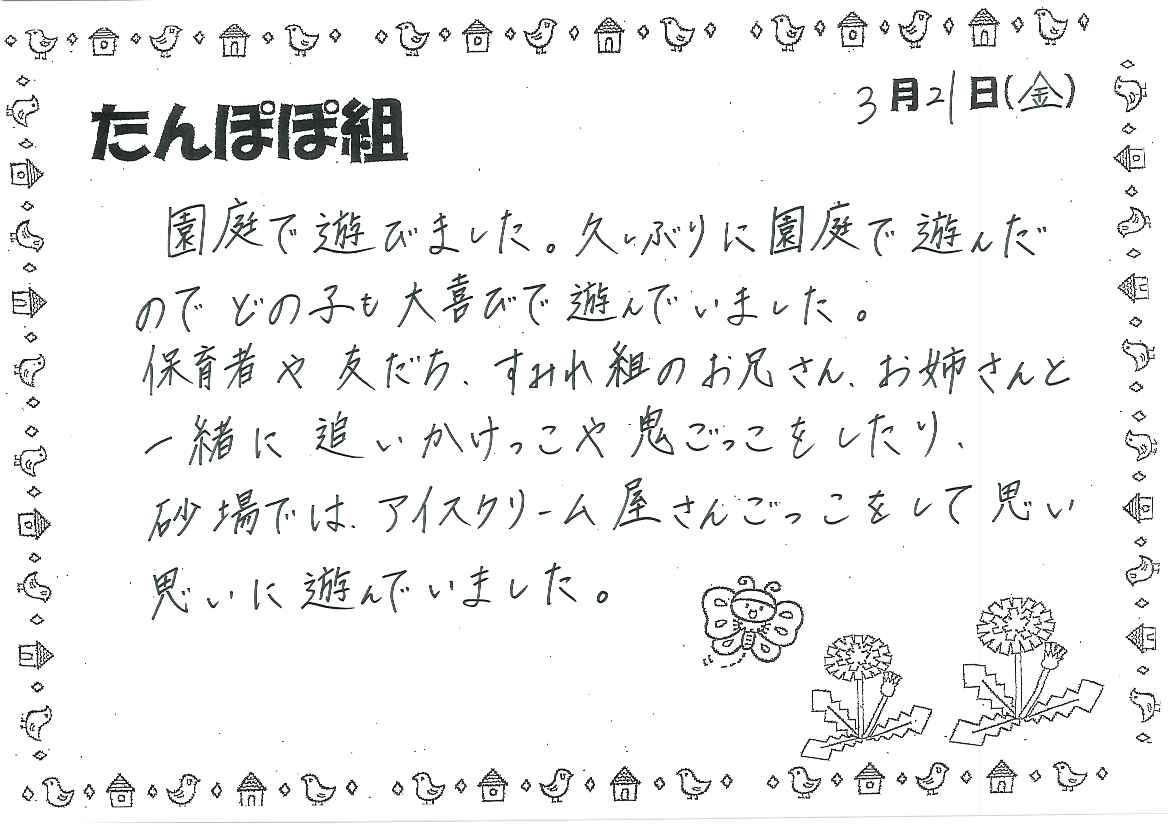 3月21日(金)
たんぽぽ組
園庭で遊びました。久しぶりに園庭で遊んだ
のでどの子も大喜びで遊んでいました。
保育者や友だち、すみれ組のお兄さん、お姉さんと
一緒に追いかけっこや鬼ごっこをしたり、
砂場では、アイスクリーム屋さんごっこをして思い
思いに遊んでいました。